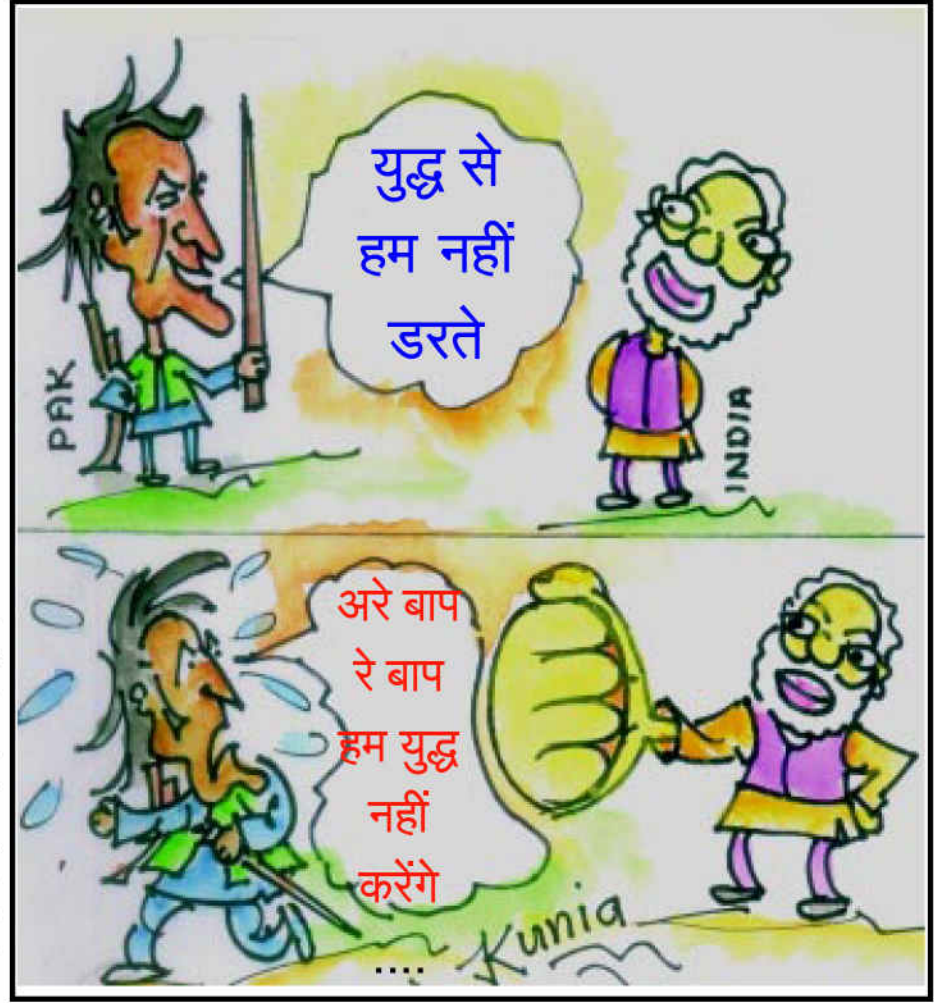 युद्ध से
हम नहीं
डरते
PAK
INDIA
अरे बाप
रे बाप
हम युद्ध
नहीं
करेंगे
....
Kunia